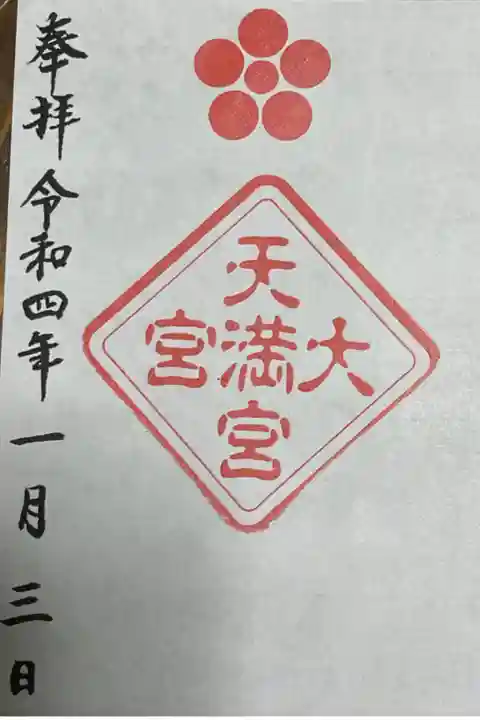 大宮
天満宮
奉拝 令和四年 一月 三日